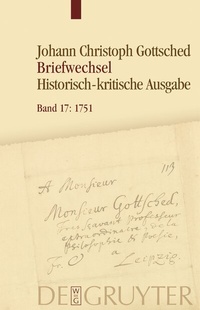 Johann Christoph Gottsched
Briefwechsel
Historisch-kritische Ausgabe
Band 17: 1751
113
A Monsieur
Monsieur Gottsched,
professeur
extraordinaire de la
Philosophie & Poesie,
F. C. a Leipzig
DE GRUYTER